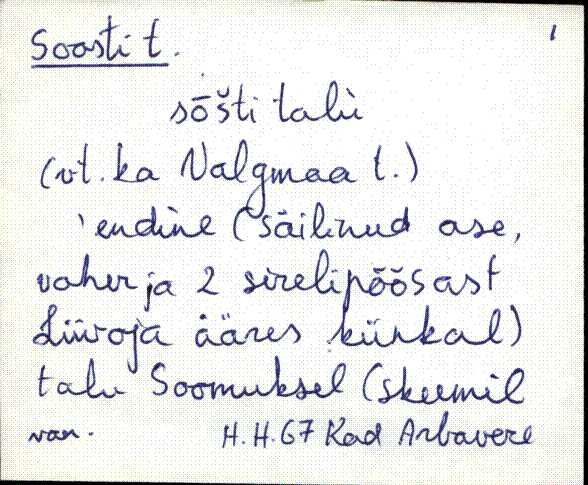 Soosti t. 1
sōšti talù
(vt. ka Valgmaa t.)
'endine (säilinud ase,
vaher ja 2 sirelipõõsast
Liivoja ääres künkal)
talu Soomuksel (skeemil
van. H.H.67 Kad Arbavere